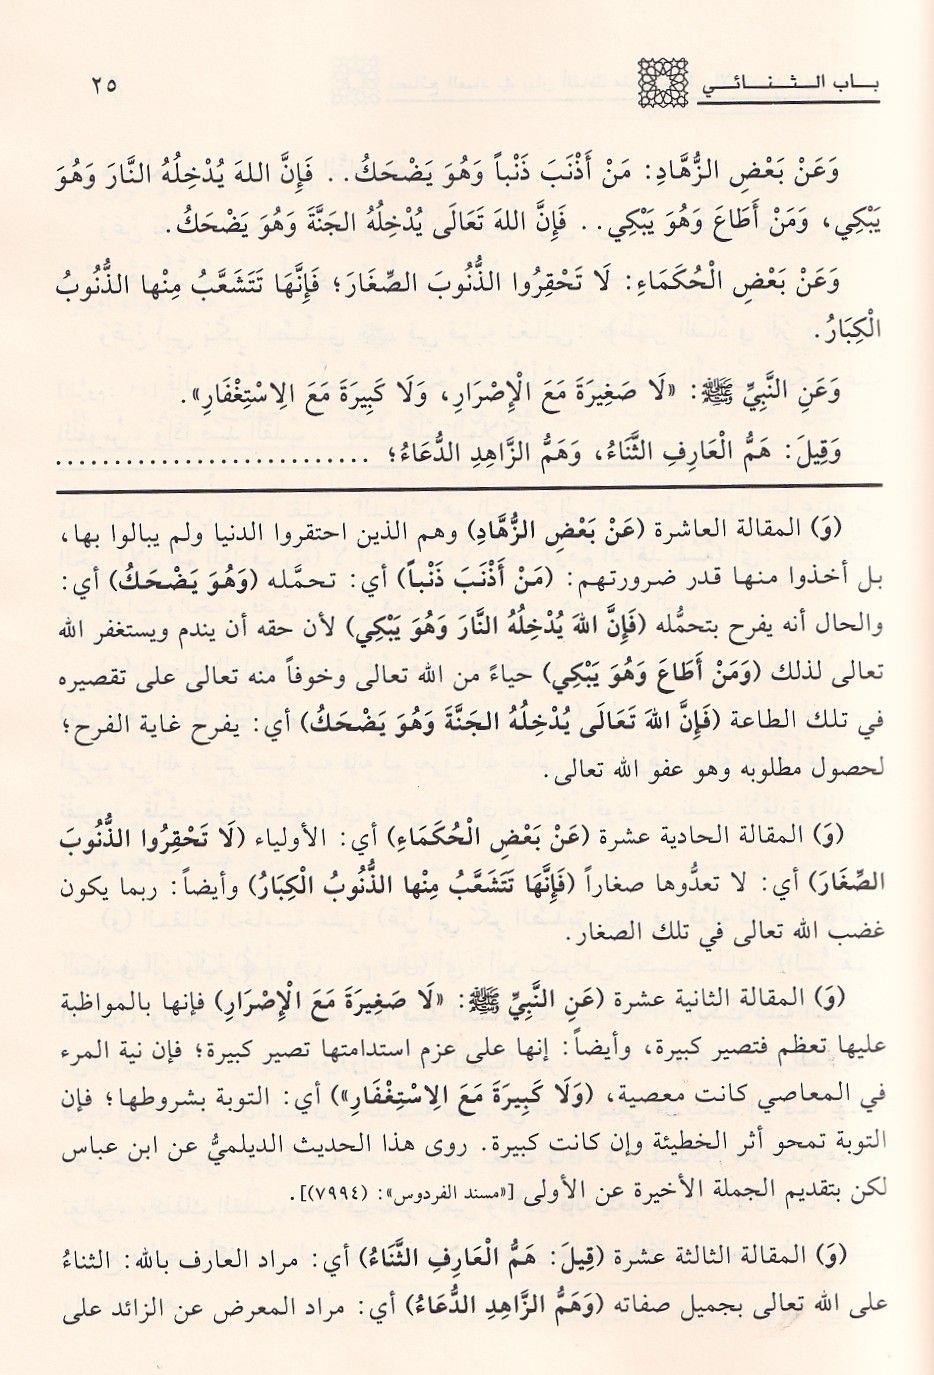 بـاب الـثـنـائـي
٢٥
وَعَنْ بَعْضِ الزُّهَّادِ: مَنْ أَذْنَبَ ذَنْباً وَهُوَ يَضْحَكُ.. فَإِنَّ اللهَ يُدْخِلُهُ النَّارَ وَهُوَ
يَبْكِي، وَمَنْ أَطَاعَ وَهُوَ يَبْكِي.. فَإِنَّ اللهَ تَعَالَى يُدْخِلُهُ الجَنَّةَ وَهُوَ يَضْحَكُ.
وَعَنْ بَعْضِ الْحُكَمَاءِ: لَا تَحْقِرُوا الذُّنُوبَ الصِّغَارَ؛ فَإِنَّهَا تَتَشَعَّبُ مِنْها الذُّنُوبُ
الْكِبَارُ.
وَعَنِ النَّبِيِّ ﷺ: «لَا صَغِيرَةَ مَعَ الْإِصْرَارِ، وَلَا كَبِيرَةَ مَعَ الِاسْتِغْفَارِ».
وَقِيلَ: هَمُّ الْعَارِفِ الثَّنَاءُ، وَهَمُّ الزَّاهِدِ الدُّعَاءُ؛ ...........................
(وَ) المقالة العاشرة (عَنْ بَعْضِ الزُّهَّادِ) وهم الذين احتقروا الدنيا ولم يبالوا بها،
بل أخذوا منها قدر ضرورتهم: (مَنْ أَذْنَبَ ذَنْباً) أي: تحمَّله (وَهُوَ يَضْحَكُ) أي:
والحال أنه يفرح بتحمُّله (فَإِنَّ اللهَ يُدْخِلُهُ النَّارَ وَهُوَ يَبْكِي) لأن حقه أن يندم ويستغفر الله
تعالى لذلك (وَمَنْ أَطَاعَ وَهُوَ يَبْكِي) حياءً من الله تعالى وخوفاً منه تعالى على تقصيره
في تلك الطاعة (فَإِنَّ اللهَ تَعَالَى يُدْخِلُهُ الجَنَّةَ وَهُوَ يَضْحَكُ) أي: يفرح غاية الفرح؛
لحصول مطلوبه وهو عفو الله تعالى.
(وَ) المقالة الحادية عشرة (عَنْ بَعْضِ الْحُكَمَاءِ) أي: الأولياء (لَا تَحْقِرُوا الذُّنُوبَ
الصِّغَارَ) أي: لا تعدُّوها صغاراً (فَإِنَّهَا تَتَشَعَّبُ مِنْها الذُّنُوبُ الْكِبَارُ) وأيضاً: ربما يكون
غضب الله تعالى في تلك الصغار.
(وَ) المقالة الثانية عشرة (عَنِ النَّبِيِّ ﷺ: «لَا صَغِيرَةَ مَعَ الْإِصْرَارِ) فإنها بالمواظبة
عليها تعظم فتصير كبيرة، وأيضاً: إنها على عزم استدامتها تصير كبيرة؛ فإن نية المرء
في المعاصي كانت معصية، (وَلَا كَبِيرَةَ مَعَ الِاسْتِغْفَارِ») أي: التوبة بشروطها؛ فإن
التوبة تمحو أثر الخطيئة وإن كانت كبيرة. روى هذا الحديث الديلميُّ عن ابن عباس
لكن بتقديم الجملة الأخيرة عن الأولى [«مسند الفردوس»: (٧٩٩٤)].
(وَ) المقالة الثالثة عشرة (قِيلَ: هَمُّ الْعَارِفِ الثَّنَاءُ) أي: مراد العارف بالله: الثناءُ
على الله تعالى بجميل صفاته (وَهَمُّ الزَّاهِدِ الدُّعَاءُ) أي: مراد المعرض عن الزائد على